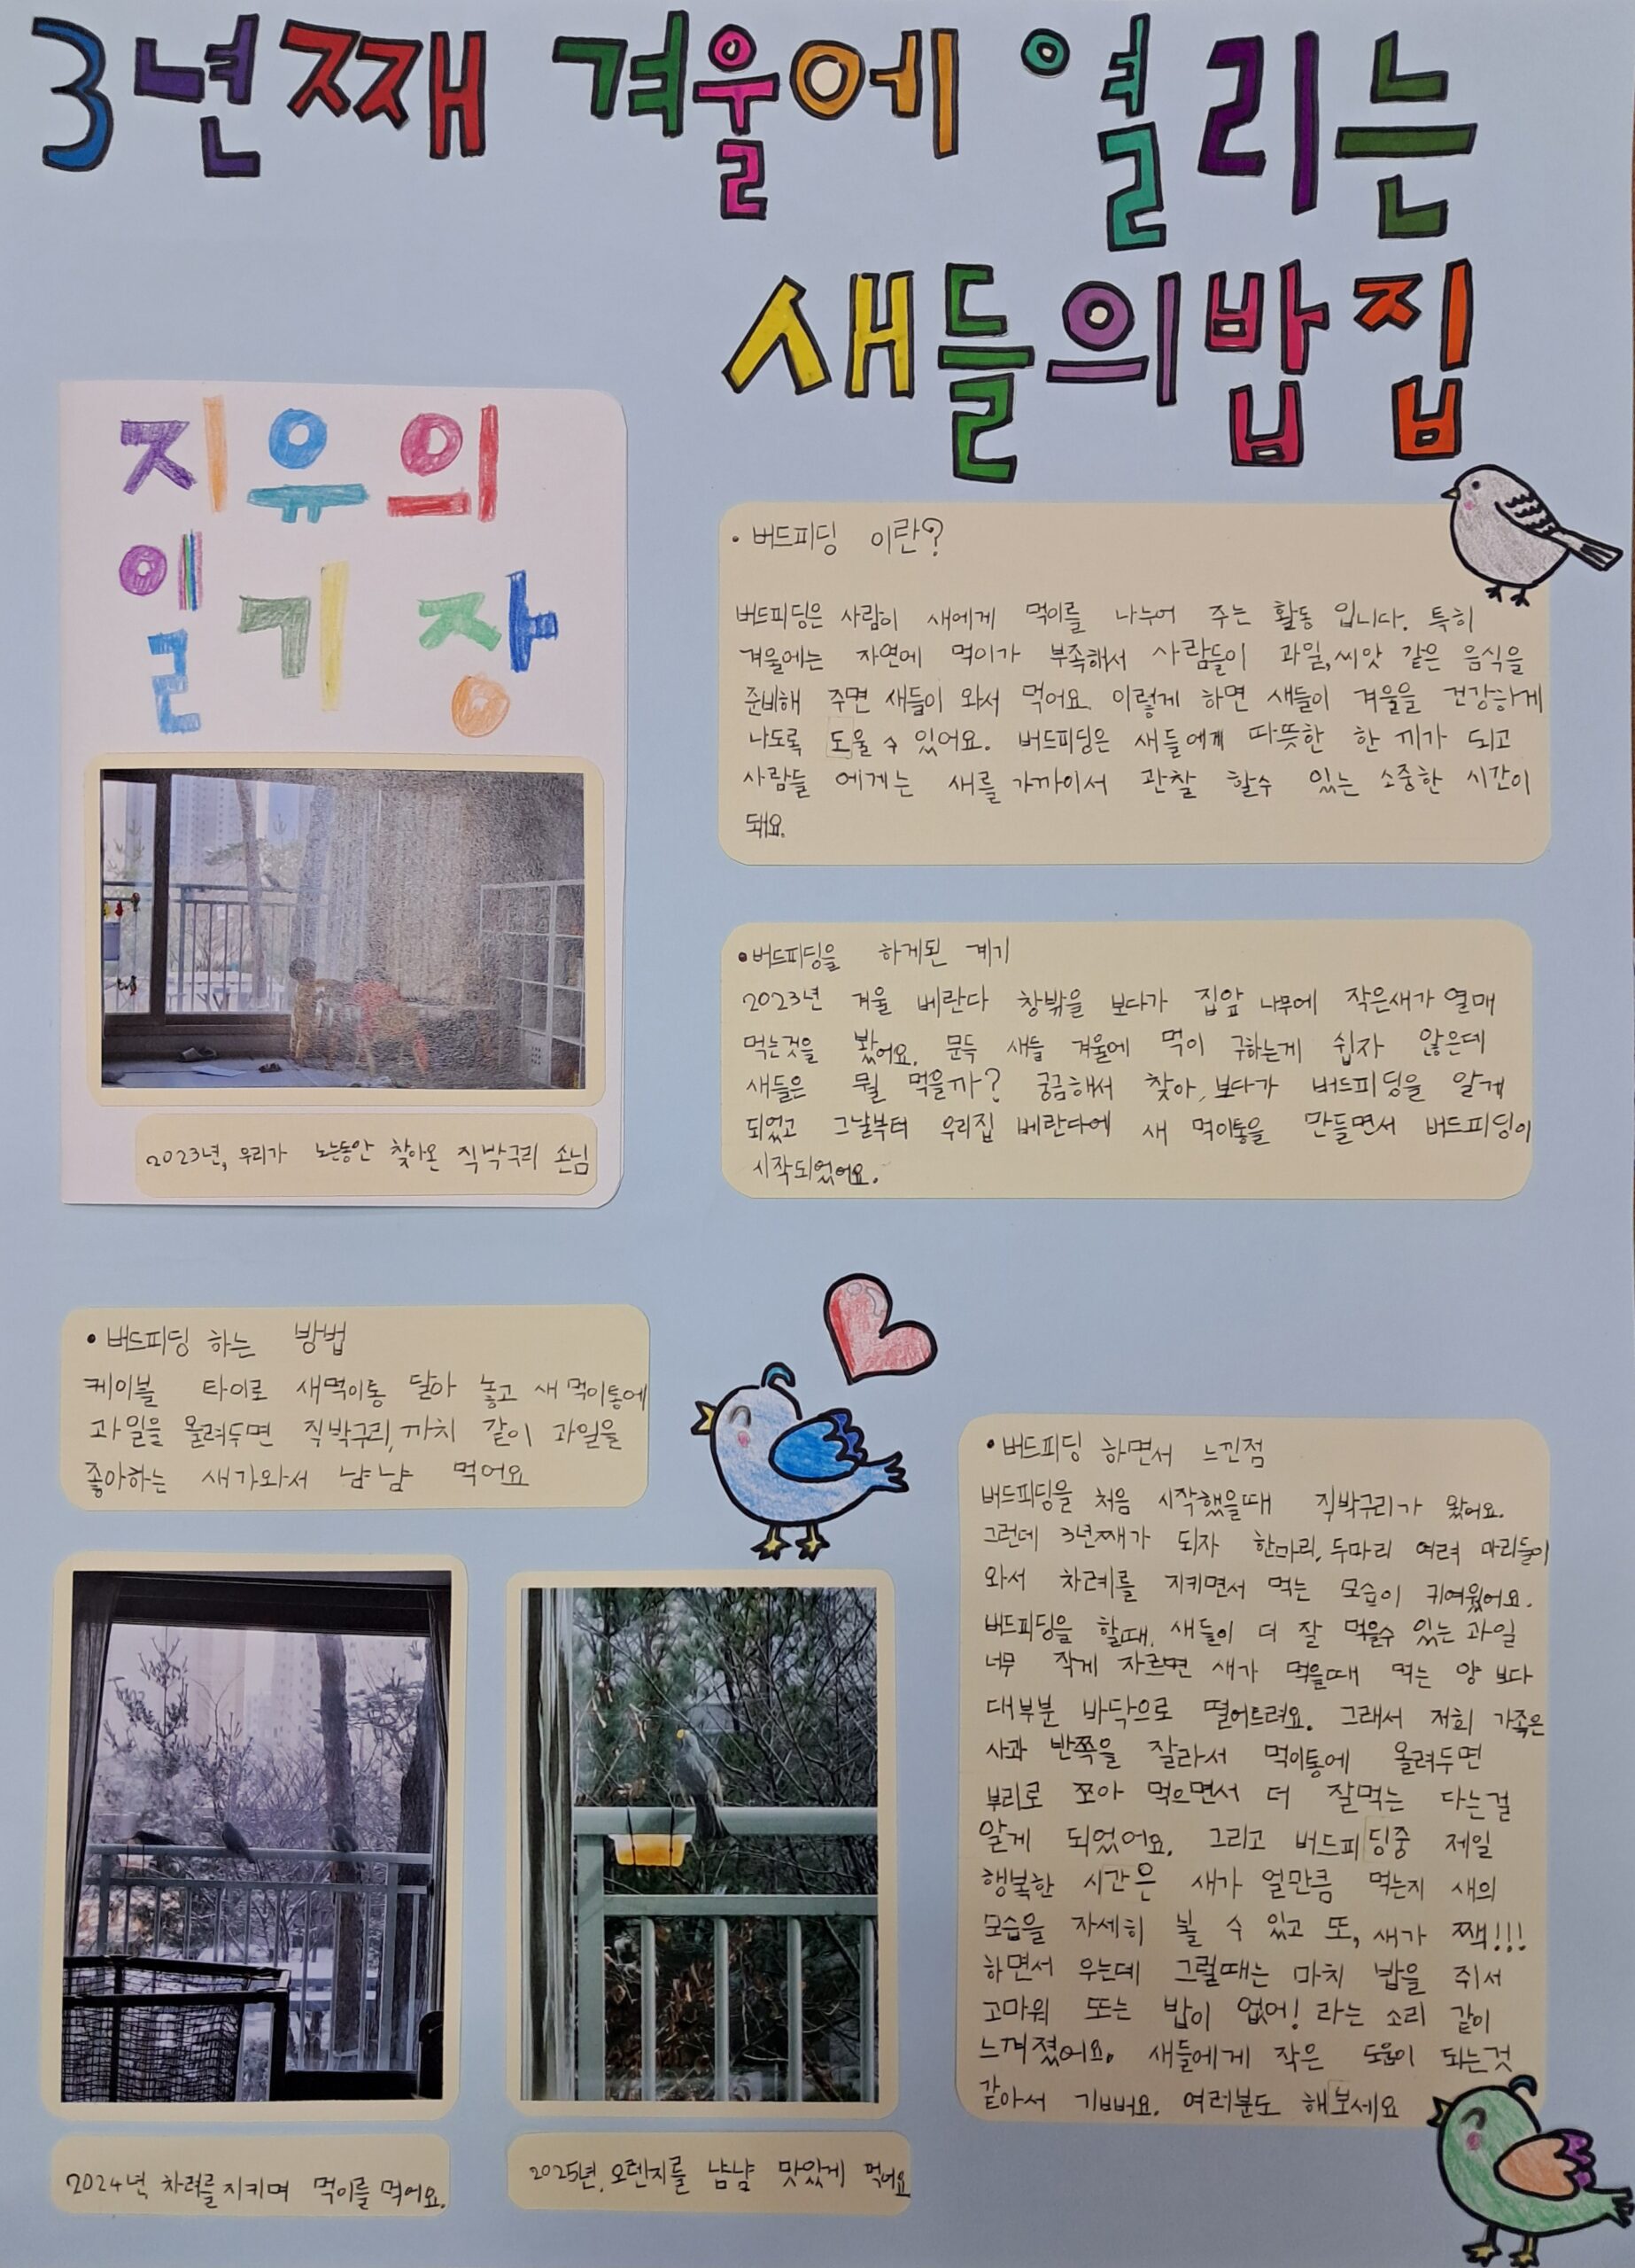 3년째 겨울에 열리는
새들의밥집
지유의
일기장
2023년, 우리가 노는동안 찾아온 직박구리 손님
• 버드피딩 이란?
버드피딩은 사람이 새에게 먹이를 나누어 주는 활동 입니다. 특히
겨울에는 자연에 먹이가 부족해서 사람들이 과일,씨앗 같은 음식을
준비해 주면 새들이 와서 먹어요. 이렇게 하면 새들이 겨울을 건강하게
나도록 도울 수 있어요. 버드피딩은 새들에게 따뜻한 한 끼가 되고
사람들 에게는 새를 가까이서 관찰 할수 있는 소중한 시간이
돼요.
• 버드피딩을 하게된 계기
2023년 겨울 베란다 창밖을 보다가 집앞 나무에 작은새가 열매
먹는것을 봤어요. 문득 새들 겨울에 먹이 구하는게 쉽자 않은데
새들은 뭘 먹을까? 궁금해서 찾아 보다가 버드피딩을 알게
되었고 그날부터 우리집 베란다에 새 먹이통을 만들면서 버드피딩이
시작되었어요.
• 버드피딩 하는 방법
케이블 타이로 새먹이통 달아 놓고 새 먹이통에
과일을 올려두면 직박구리,까치 같이 과일을
좋아하는 새가와서 냠냠 먹어요
2024년 차려를 지키며 먹이를 먹어요.
2025년, 오렌지를 냠냠 맛있게 먹어요
• 버드피딩 하면서 느낀점
버드피딩을 처음 시작했을때 직박구리가 왔어요.
그런데 3년째가 되자 한마리, 두마리 여려 마리들이
와서 차례를 지키면서 먹는 모습이 귀여웠어요.
버드피딩을 할때, 새들이 더 잘 먹을수 있는 과일
너무 작게 자르면 새가 먹을때 먹는 양 보다
대부분 바닥으로 떨어트려요. 그래서 저희 가족은
사과 반쪽을 잘라서 먹이통에 올려두면
부리로 쪼아 먹으면서 더 잘먹는 다는걸
알게 되었어요. 그리고 버드피딩중 제일
행복한 시간은 새가 얼만큼 먹는지 새의
모습을 자세히 볼 수 있고 또, 새가 짹!!!
하면서 우는데 그럴때는 마치 밥을 줘서
고마워 또는 밥이 없어! 라는 소리 같이
느껴졌어요. 새들에게 작은 도움이 되는것
같아서 기뻐요. 여러분도 해보세요